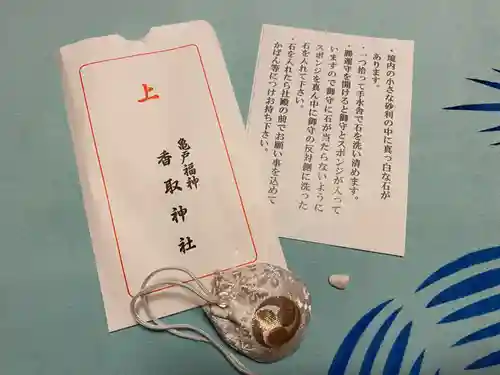 上
亀戸福神
香取神社
・境内の小さな砂利の中に真っ白な石が
あります。
・一つ拾って手水舎で石を洗い清めます。
・勝運守を開けると御守とスポンジが入って
いますので御守に石が当たらないように
スポンジを真ん中に御守の反対側に洗った
石を入れて下さい。
・石を入れたら社殿の前でお願い事を込めて
かばん等につけお持ち下さい。